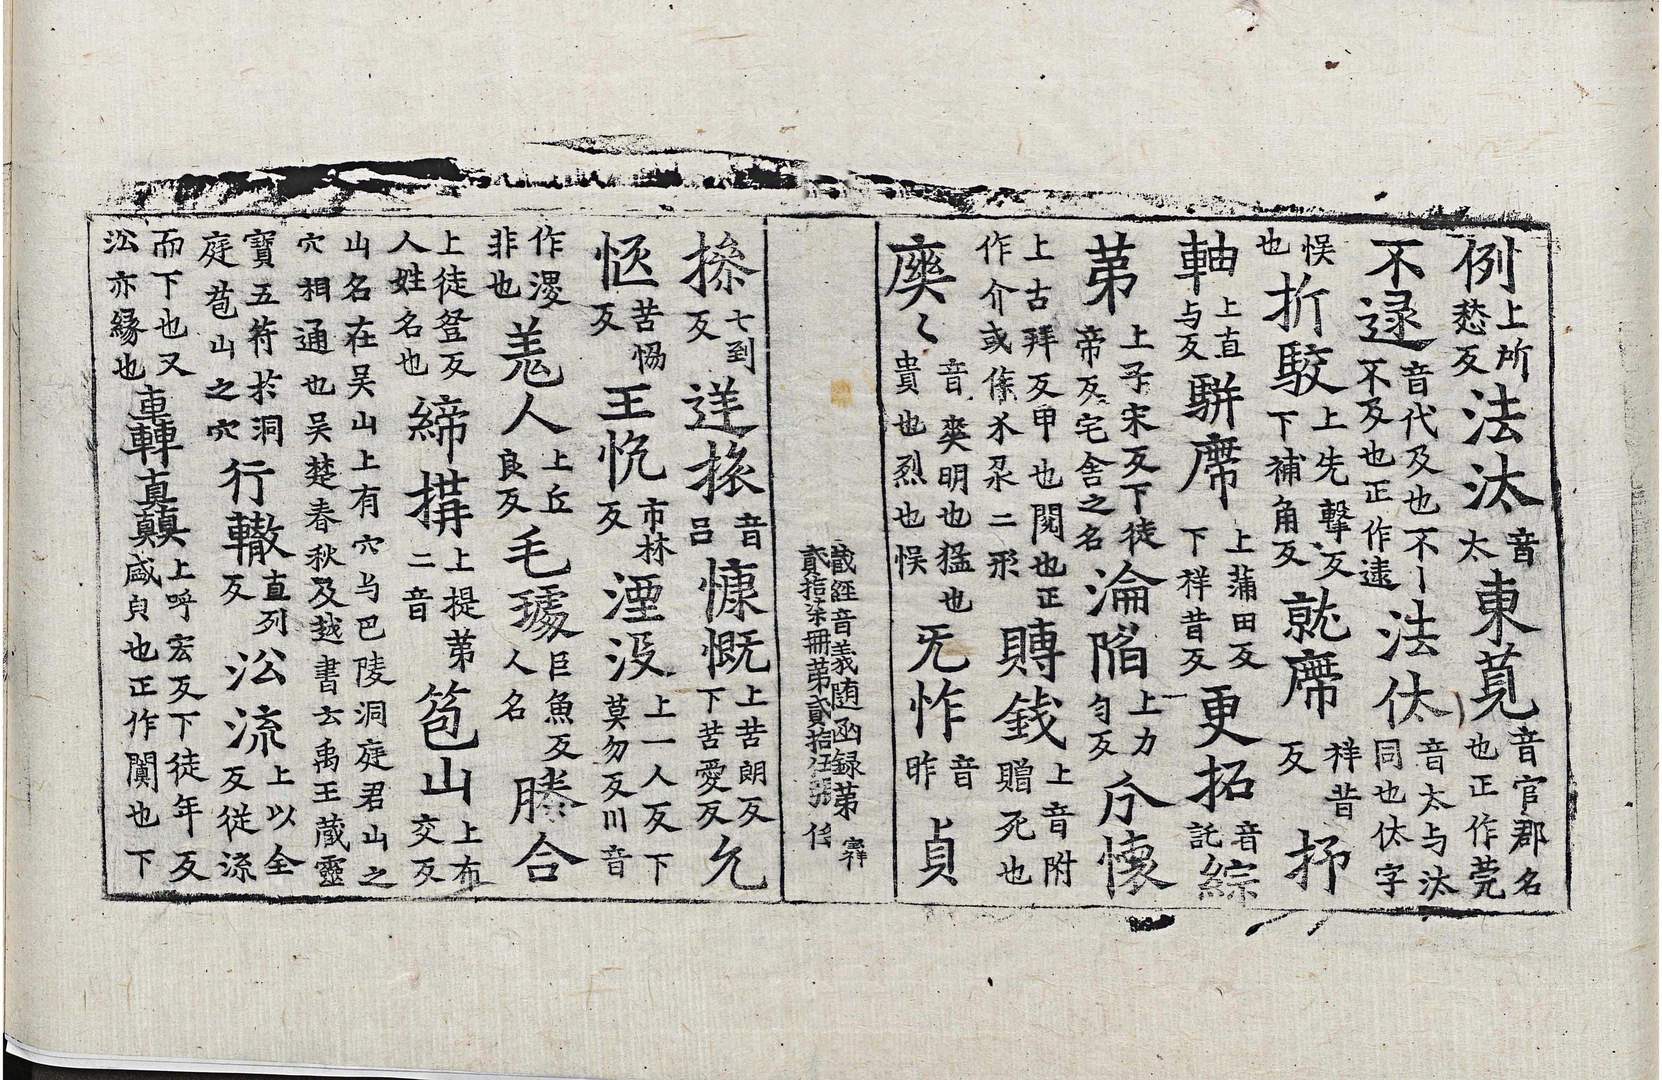 例上所愁反法汰音太東莧音官郡名也正作莞
不逯音代及也不丨不及也正作逮法㤗音太与汰同也㤗字
悮也折駮上先擊反下補角反就席祥昔反抒
軸上直与反駢席上蒲田反下祥昔反更拓音託綜
苐上子宋反下徒帝反宅舍之名淪陷上力勻反下懷
上古拜反甲也閱也正作介或作二形賻錢上音附贈死也
音奭明也猛也貴也烈也悮旡怍音昨貞
藏經音義随函録第貳拾柒冊第貳拾伍張
搽七到反送振音吕慷慨上苦朗反下苦愛反允
愜苦愶反王忱市林反湮没上一人反下莫勿反川音
作㴔非也羗人上丘良反毛璩巨魚反人名勝合
上徒登反人姓名也締搆上提第二音苞山上布交反
山名在吴山上有穴与巴陵洞庭君山之穴相通也吴楚春秋及越書云禹王蔵靈
寶五符扵洞庭苞山之穴行轍直列反㳂流上以全反從流
而下也又㳂亦縁也轟闐上呼宏反下徒年反盛皃也正作闐也下